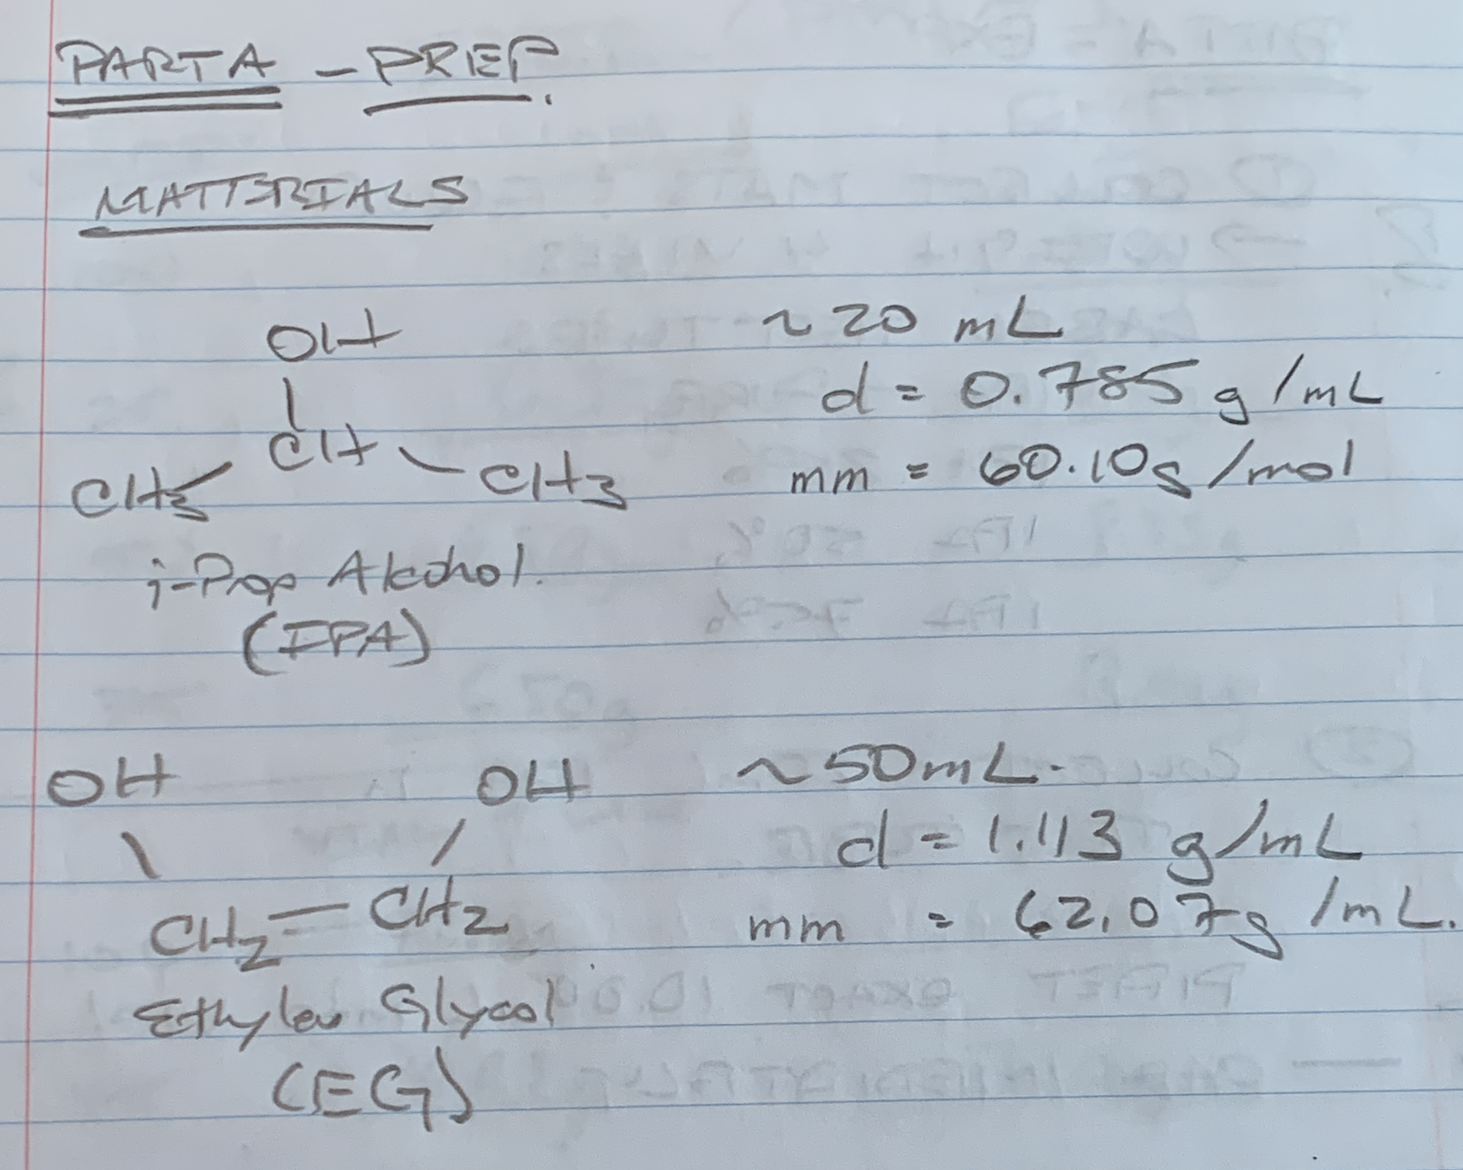 PART A - PREP.
MATTERIALS
OH ~20 mL
d = 0.785 g/mL
CH
mm = 60.10g/mol
CH3 CH3
i-Prop Alcohol.
(IPA)
OH OH ~50mL.
d = 1.113 g/mL
CH2=CH2 mm = 62.07g/mL.
Ethylen Glycol
(EG)